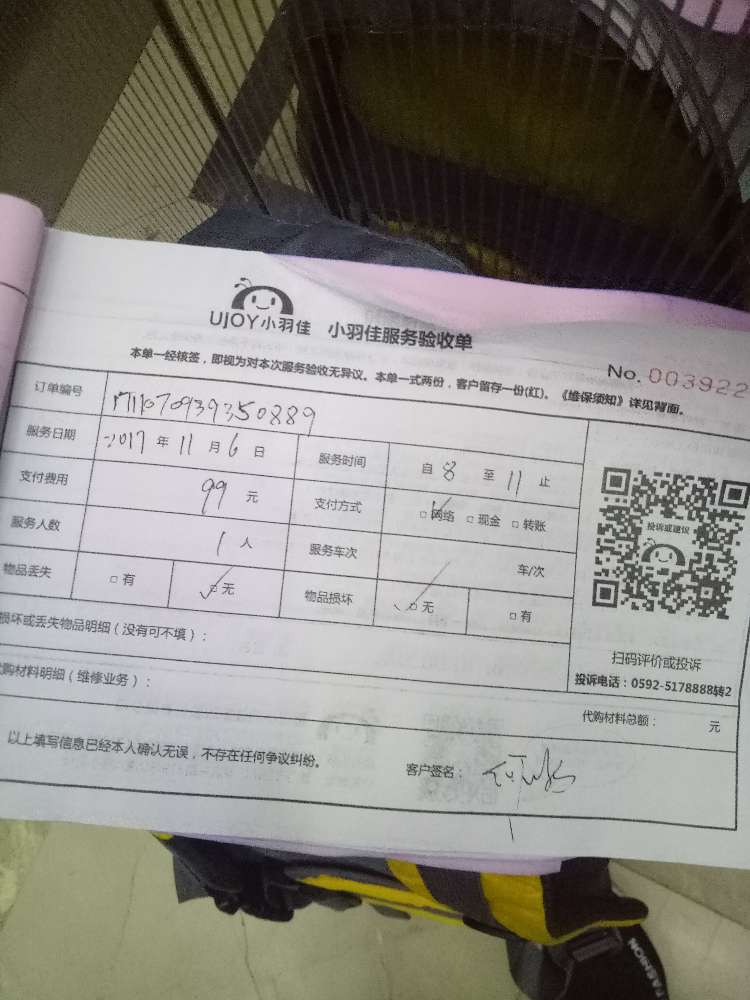 UJOY小羽佳 小羽佳服务验收单
No. 003922
本单一经核签，即视为对本次服务验收无异议。本单一式两份，客户留存一份(红)。《维保须知》详见背面。
订单编号
服务日期 2017 年 11 月 6 日 服务时间 自 8 至 11 止
支付费用 99 元 支付方式 □网络 □现金 □转账
服务人数 1 人 服务车次 车/次
物品丢失 □有 □无 物品损坏 □无 □有
投诉或建议
扫码评价或投诉
投诉电话：0592-5178888转2
损坏或丢失物品明细（没有可不填）：
代购材料明细（维修业务）：
代购材料总额： 元
以上填写信息已经本人确认无误，不存在任何争议纠纷。 客户签名：
FASHION